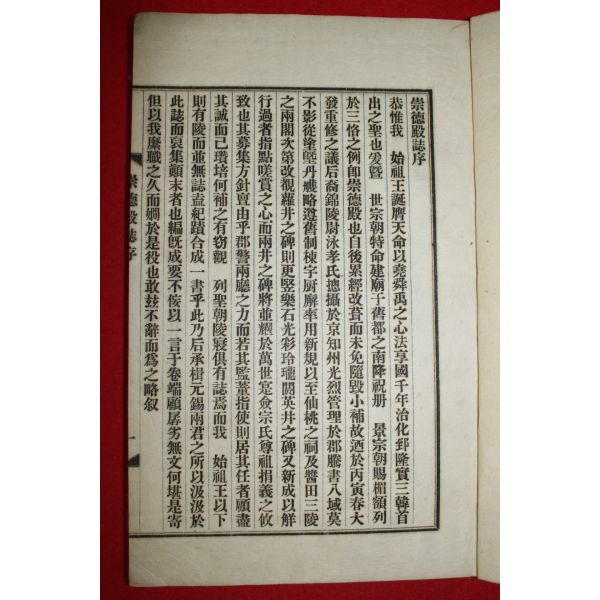 崇德殿誌序
恭惟我 始祖王誕膺天命以堯舜禹之心法享國千年治化郅隆實三韓首
出之聖也爰曁 世宗朝特命建廟于舊都之南降祝册 景宗朝賜楣額列
於三恪之例卽崇德殿也自後累經改葺而未免隨毁小補故迺於丙寅春大
發重修之議后裔錦陵尉泳孝氏摠攝於京知州光烈管理於郡騰書八域莫
不影從塗墍丹雘略遵舊制棟宇厨廨率用新規以至仙桃之祠及醬田三陵
之兩閣次第改觀蘿井之碑則更竪樂石光彩玲瓏閼英井之碑又新成以觧
行過者指點嗟賞之心而兩井之碑將重耀於萬世寔僉宗氏尊祖捐義之攸
致也其募集方針亶由乎郡警兩廳之力而若其監董指使則居其任者願盡
其誠而已瓚培何補之有竊觀 列聖朝陵寢俱有誌焉而我 始祖王以下
則有陵而並無誌盍紀蹟合成一書乎此乃后承楫元錫兩君之所以汲汲於
此誌而裒集顚末者也編旣成要不侫以一言于卷端顧孱劣無文何堪是寄
但以我縻職之久而嫺於是役也敢玆不辭而爲之略叙
崇德殿誌序
一